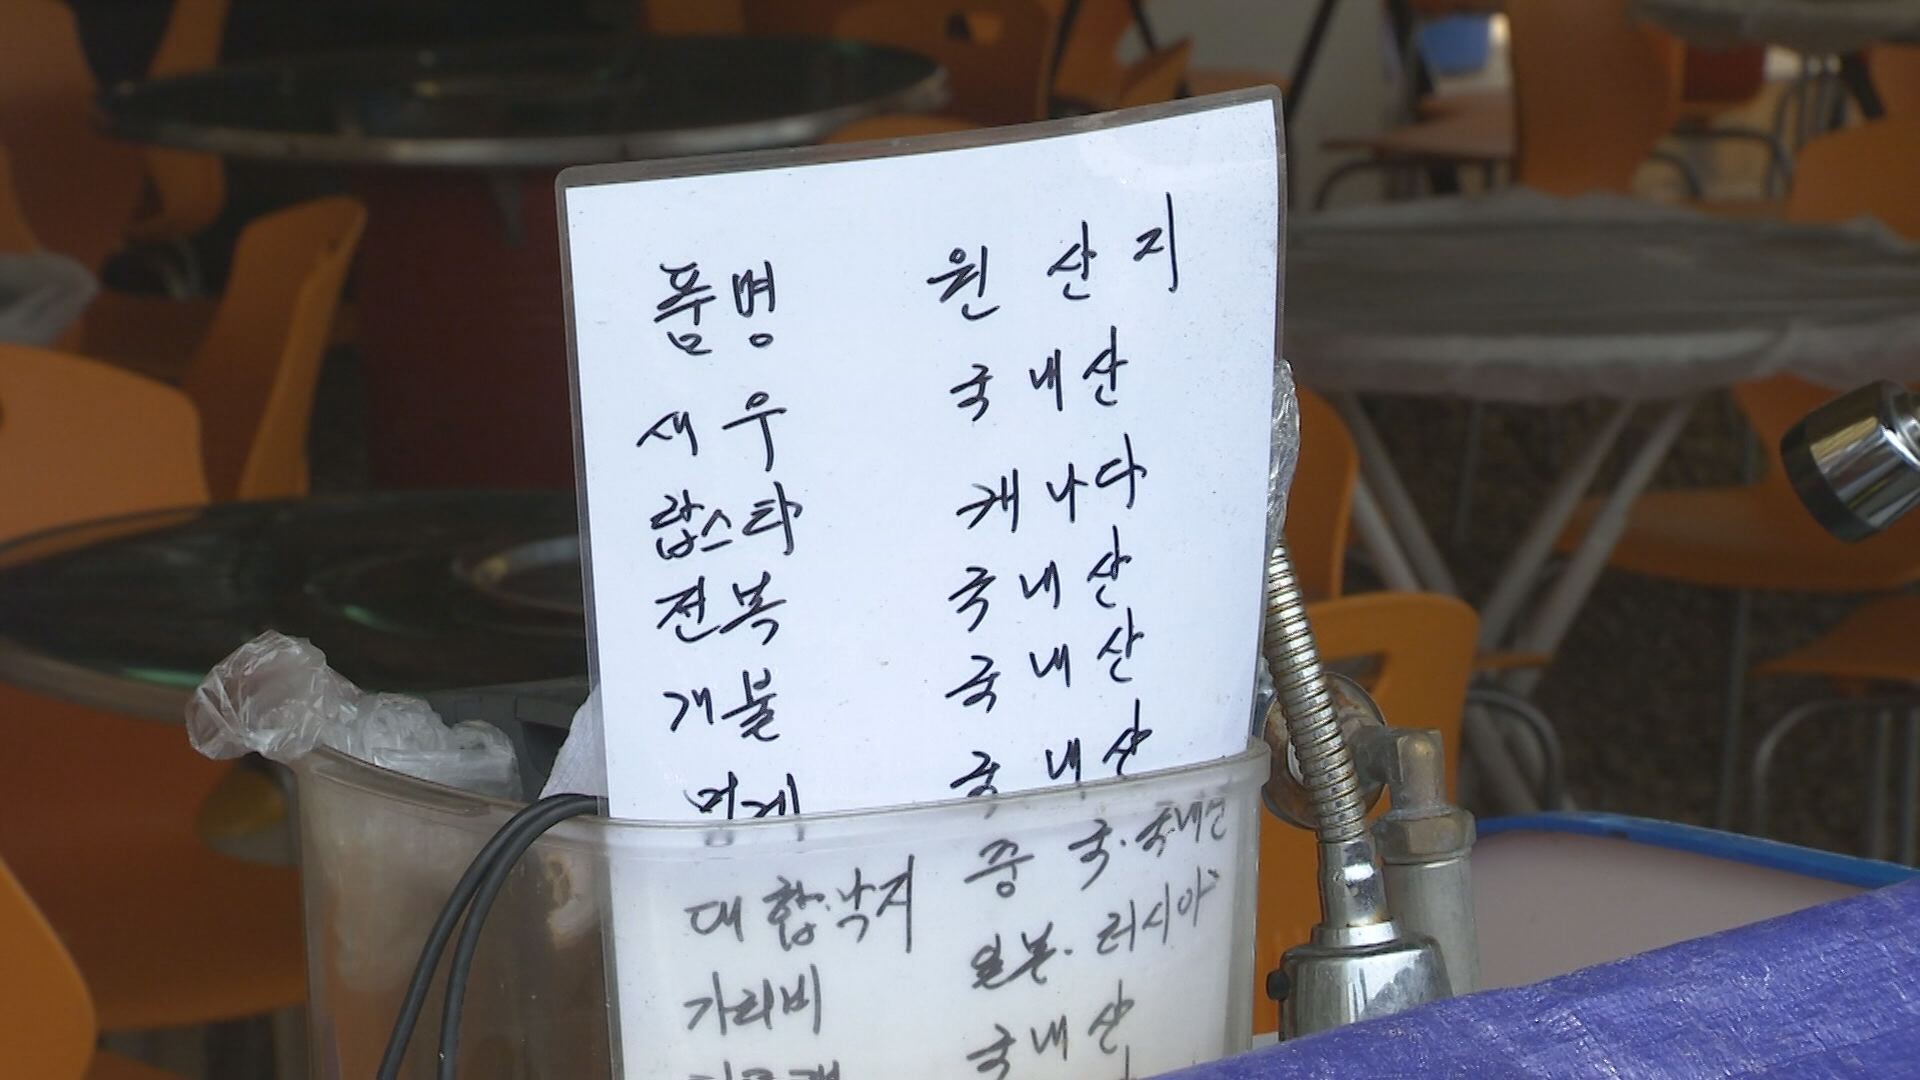 품명 원산지
새우 국내산
랍스타 캐나다
전복 국내산
개불 국내산
멍게 국내산
대합.낙지 중국.국내산
가리비 일본.러시아
국내산